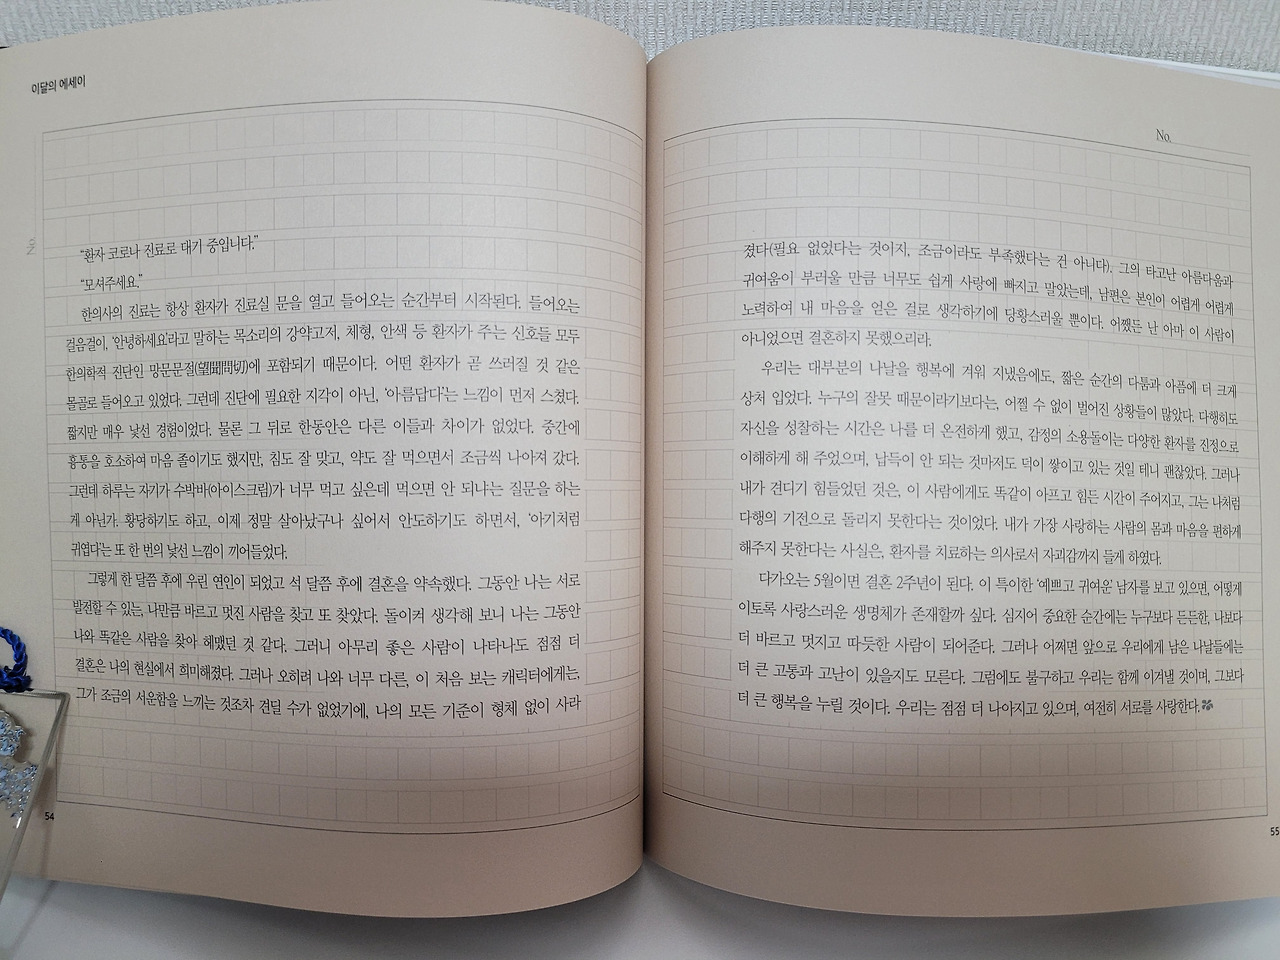 이달의 에세이
No.
“환자 코로나 진료로 대기 중입니다.”
“모셔주세요.”
한의사의 진료는 항상 환자가 진료실 문을 열고 들어오는 순간부터 시작된다. 들어오는
걸음걸이, ‘안녕하세요’라고 말하는 목소리의 강약고저, 체형, 안색 등 환자가 주는 신호들 모두
한의학적 진단인 망문문절(望聞問切)에 포함되기 때문이다. 어떤 환자가 곧 쓰러질 것 같은
몰골로 들어오고 있었다. 그런데 진단에 필요한 지각이 아닌, ‘아름답다’는 느낌이 먼저 스쳤다.
짧지만 매우 낯선 경험이었다. 물론 그 뒤로 한동안은 다른 이들과 차이가 없었다. 중간에
흉통을 호소하여 마음 졸이기도 했지만, 침도 잘 맞고, 약도 잘 먹으면서 조금씩 나아져 갔다.
그런데 하루는 자기가 수박바(아이스크림)가 너무 먹고 싶은데 먹으면 안 되냐는 질문을 하는
게 아닌가. 황당하기도 하고, 이제 정말 살아났구나 싶어서 안도하기도 하면서, ‘아기처럼
귀엽다’는 또 한 번의 낯선 느낌이 끼어들었다.
그렇게 한 달쯤 후에 우린 연인이 되었고 석 달쯤 후에 결혼을 약속했다. 그동안 나는 서로
발전할 수 있는, 나만큼 바르고 멋진 사람을 찾고 또 찾았다. 돌이켜 생각해 보니 나는 그동안
나와 똑같은 사람을 찾아 헤맸던 것 같다. 그러니 아무리 좋은 사람이 나타나도 점점 더
결혼은 나의 현실에서 희미해졌다. 그러나 오히려 나와 너무 다른, 이 처음 보는 캐릭터에게는,
그가 조금의 서운함을 느끼는 것조차 견딜 수가 없었기에, 나의 모든 기준이 형체 없이 사라
54
No.
졌다(필요 없었다는 것이지, 조금이라도 부족했다는 건 아니다). 그의 타고난 아름다움과
귀여움이 부러울 만큼 너무도 쉽게 사랑에 빠지고 말았는데, 남편은 본인이 어렵게 어렵게
노력하여 내 마음을 얻은 걸로 생각하기에 당황스러울 뿐이다. 어쨌든 난 아마 이 사람이
아니었으면 결혼하지 못했으리라.
우리는 대부분의 나날을 행복에 겨워 지냈음에도, 짧은 순간의 다툼과 아픔에 더 크게
상처 입었다. 누구의 잘못 때문이라기보다는, 어쩔 수 없이 벌어진 상황들이 많았다. 다행히도
자신을 성찰하는 시간은 나를 더 온전하게 했고, 감정의 소용돌이는 다양한 환자를 진정으로
이해하게 해 주었으며, 납득이 안 되는 것마저도 덕이 쌓이고 있는 것일 테니 괜찮았다. 그러나
내가 견디기 힘들었던 것은, 이 사람에게도 똑같이 아프고 힘든 시간이 주어지고, 그는 나처럼
다행의 기전으로 돌리지 못한다는 것이었다. 내가 가장 사랑하는 사람의 몸과 마음을 편하게
해주지 못한다는 사실은, 환자를 치료하는 의사로서 자괴감까지 들게 하였다.
다가오는 5월이면 결혼 2주년이 된다. 이 특이한 ‘예쁘고 귀여운’ 남자를 보고 있으면, 어떻게
이토록 사랑스러운 생명체가 존재할까 싶다. 심지어 중요한 순간에는 누구보다 든든한, 나보다
더 바르고 멋지고 따듯한 사람이 되어준다. 그러나 어쩌면 앞으로 우리에게 남은 나날들에는
더 큰 고통과 고난이 있을지도 모른다. 그럼에도 불구하고 우리는 함께 이겨낼 것이며, 그보다
더 큰 행복을 누릴 것이다. 우리는 점점 더 나아지고 있으며, 여전히 서로를 사랑한다.
55